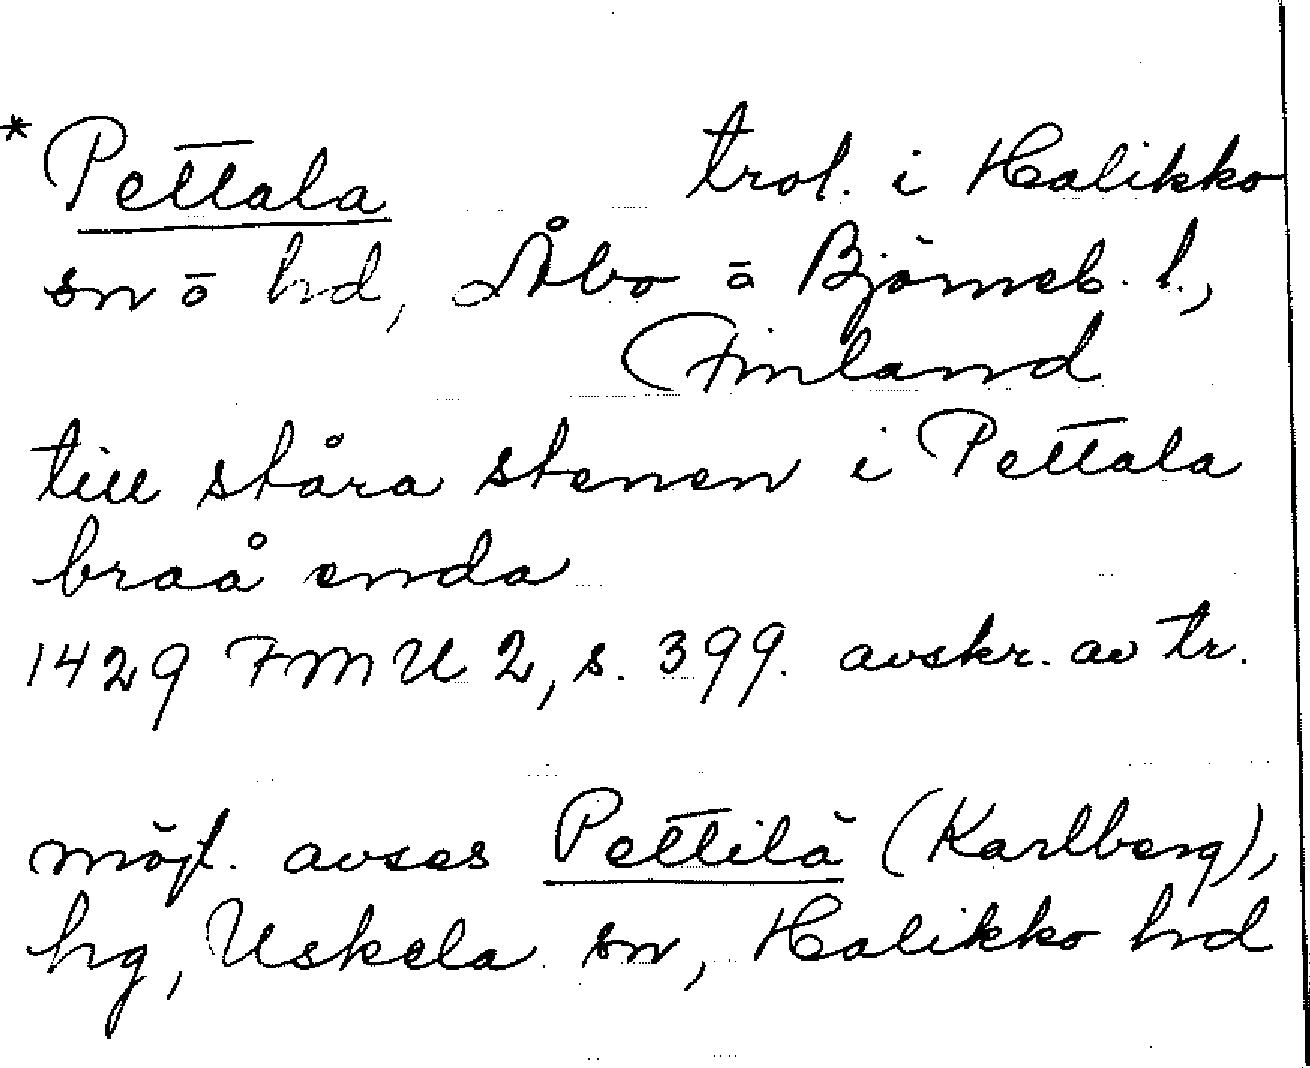 *Pettala trol. i Halikko
sn o hd, Åbo o Björneb. l.,
Finland
till ståra stenen i Pettala
braå enda
1429 FMU 2, s. 399. avskr. av tr.
möjl. avses Pettilä (Karlberg),
hg, Uskela sn, Halikko hd